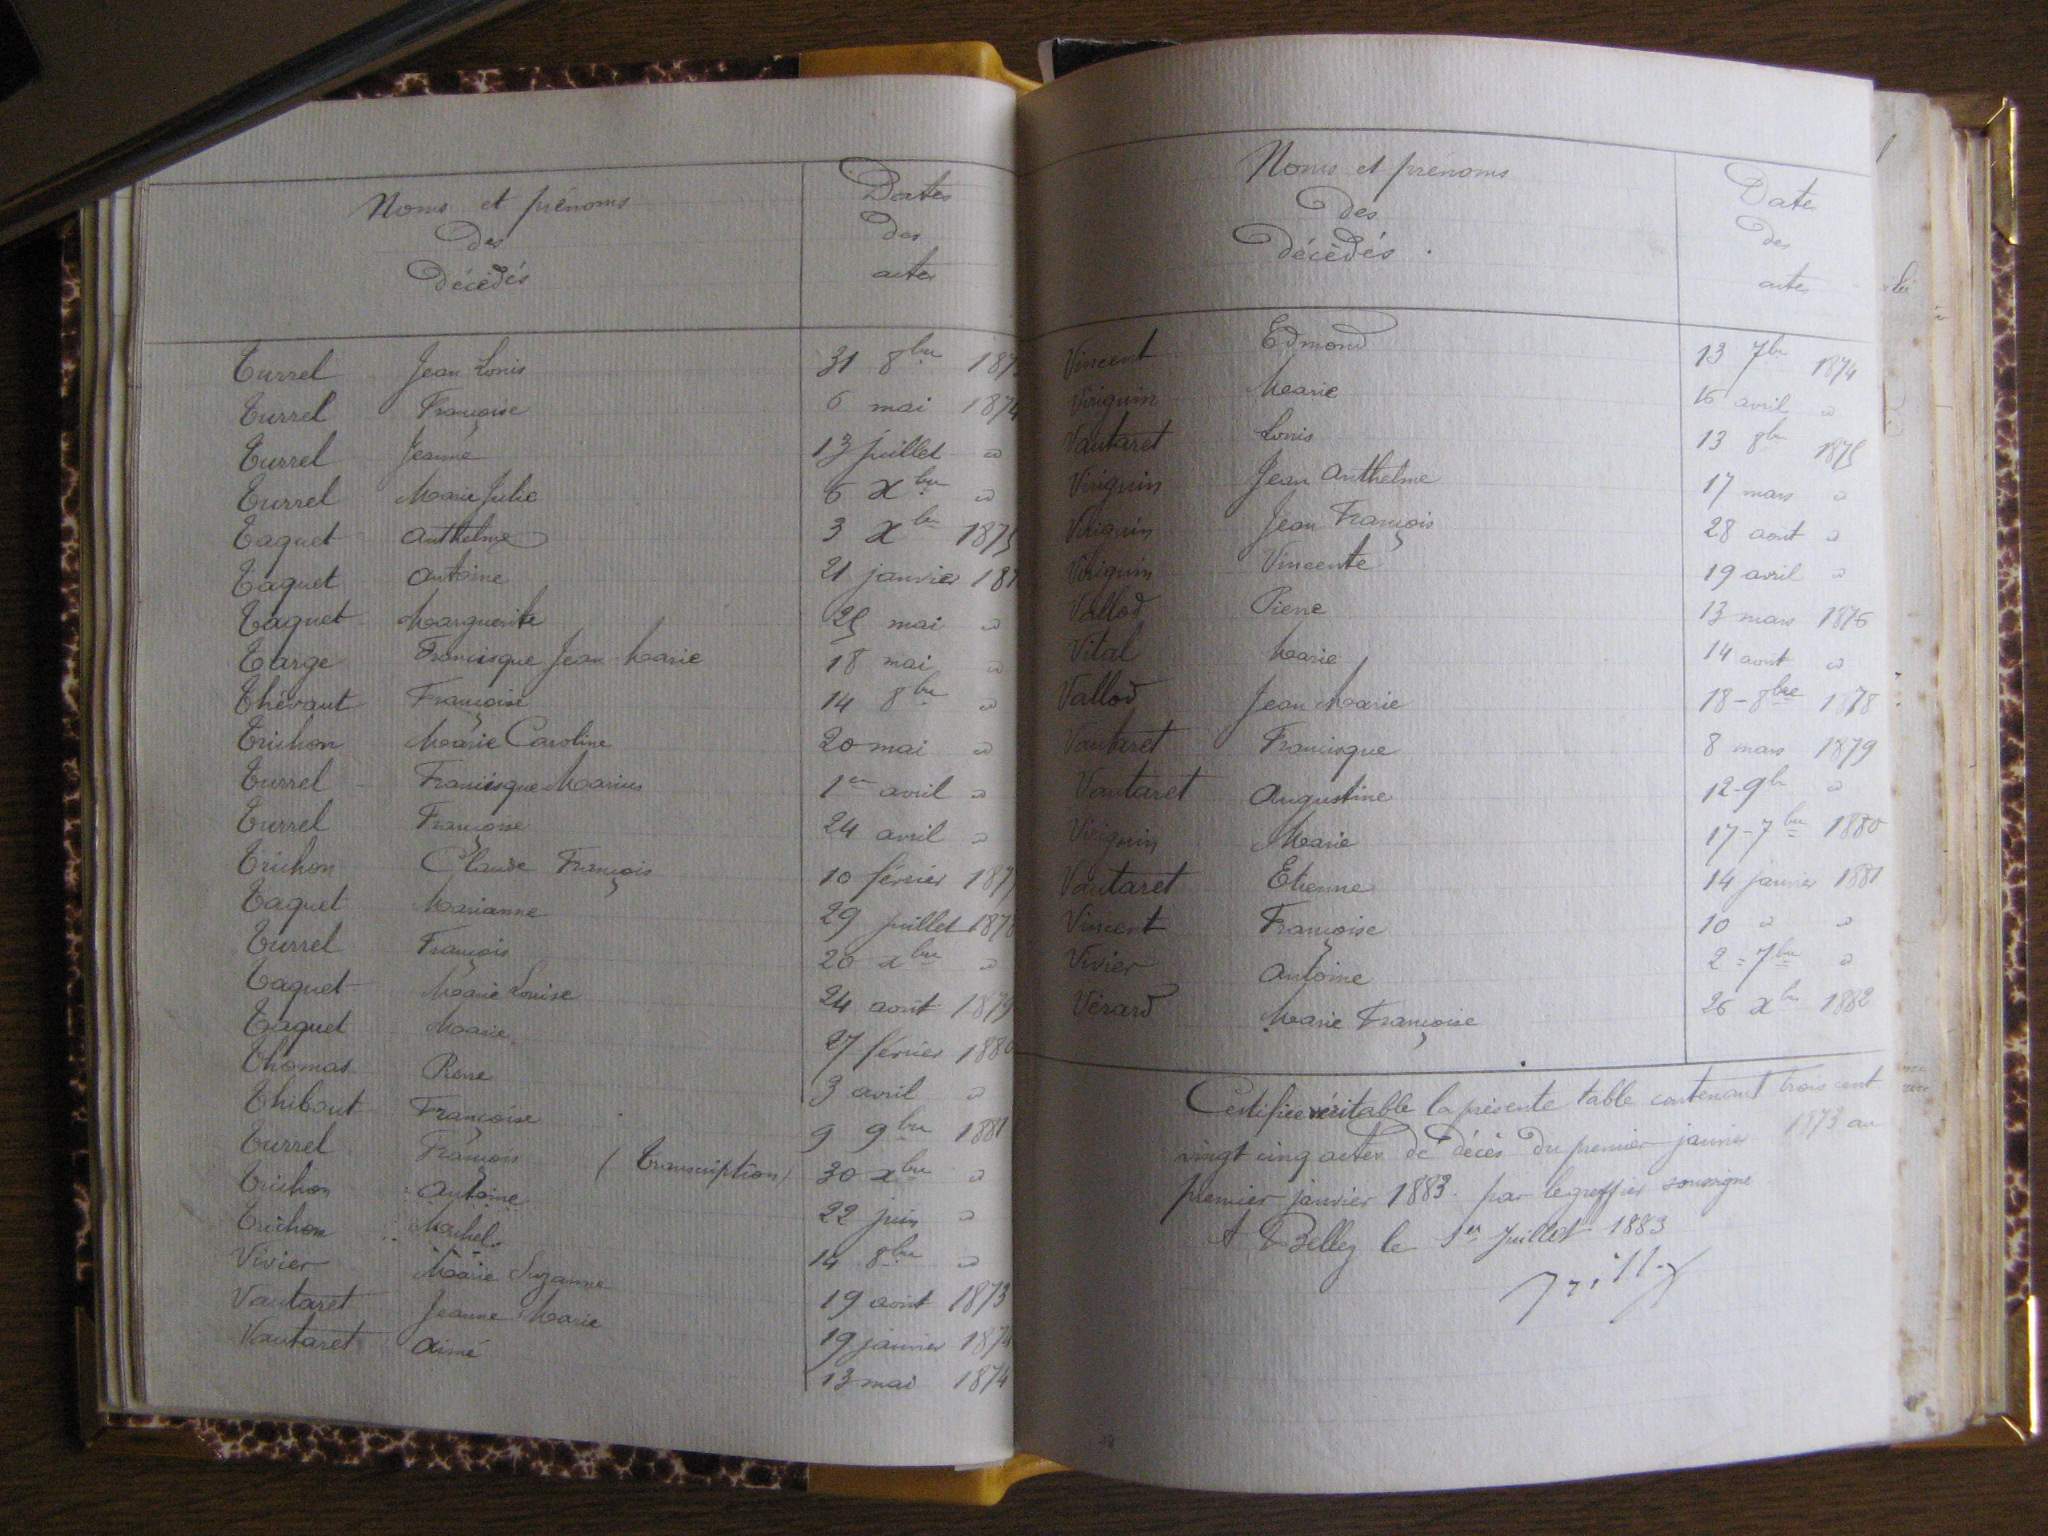 Noms et prénoms
des
décédés
Dates
des
actes
Turrel Jean Louis 31 8bre
Turrel Françoise 6 mai 1874
Turrel Jeanne 13 juillet "
Turrel Marie Julie 6 Xbre "
Taquet Anthelme 3 Xbre 1875
Taquet Antoine 21 janvier
Taquet Marguerite 25 mai "
Targe Francisque Jean Marie 18 mai "
Thévaut Françoise 14 8bre "
Trichon Marie Caroline 20 mai "
Turrel Francisque Marius 1er avril "
Turrel Françoise 24 avril "
Trichon Claude François 10 février 1877
Taquet Marianne 29 juillet 1878
Turrel François 20 xbre "
Taquet Marie Louise 24 août 1879
Taquet Marie 27 février 1880
Thomas Pierre 3 avril "
Thibout Françoise 9 9bre 1881
Turrel François (Transcription) 30 xbre "
Trichon Antoine 22 juin "
Trichon Michel 14 8bre "
Vivier Marie Suzanne 19 août 1873
Vautaret Jeanne Marie 19 janvier 1874
Vautaret Aimé 13 mai 1874
Noms et prénoms
des
décédés
Dates
des
actes
Vincent Edmond 13 7bre 1874
Viriguin Marie 16 avril "
Vautaret Louis 13 8bre 1875
Viriguin Jean Anthelme 17 mars "
Viriguin Jean François 28 aout "
Viriguin Vincente 19 avril "
Vallod Pierre 13 mars 1876
Vital Marie 14 aout "
Vallod Jean Marie 18 - 8bre 1878
Vautaret Francisque 8 mars 1879
Vautaret Augustine 12 - 9bre "
Viriguin Marie 17 - 7bre 1880
Vautaret Etienne 14 janvier 1881
Vincent Françoise 10 " "
Vivier Antoine 2 = 7bre "
Vérard Marie Françoise 26 xbre 1882
Certifiée véritable la présente table contenant trois cent
vingt cinq actes de décès du premier janvier 1873 au
premier janvier 1883 par le greffier soussigné
A Belley le 1er Juillet 1883